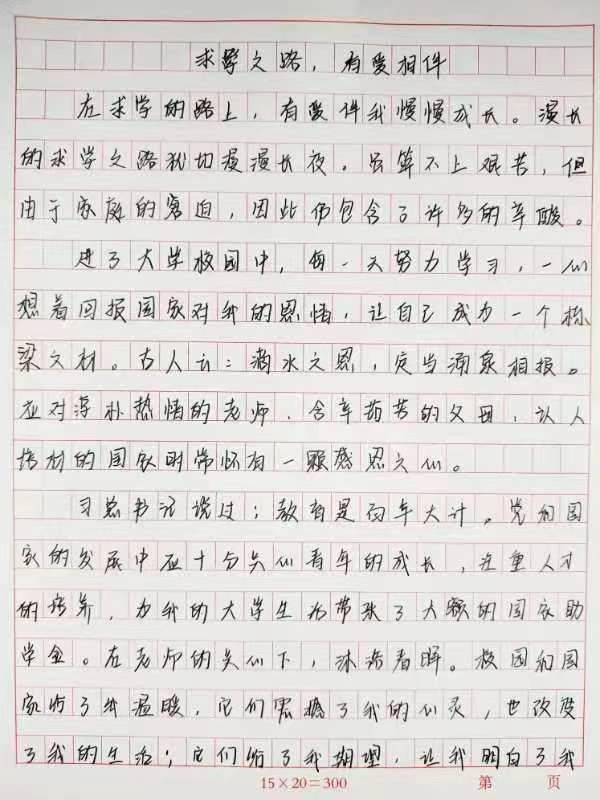 求学之路，有爱相伴
在求学的路上，有爱伴我慢慢成长。漫长
的求学之路犹如漫漫长夜，虽算不上艰苦，但
由于家庭的窘迫，因此仍包含了许多的辛酸。
进了大学校园中，每一天努力学习，一心
想着回报国家对我的恩情，让自己成为一个栋
梁之材。古人云：滴水之恩，定当涌泉相报。
应对淳朴热情的老师，含辛茹苦的父母，以人
的国家时常怀有一颗感恩之心。
习总书记说过；教育是百年大计。党和国
家的发展中应十分关心青年的成长，注重人才
的培养，为我的大学生活带来了大额的国家助
学金。在老师的关心下，沐浴春晖。校园和国
家给了我温暖，它们震撼了我的心灵，也改变
了我的生活；它们给了我期望，让我明白了我
15×20=300
第 页